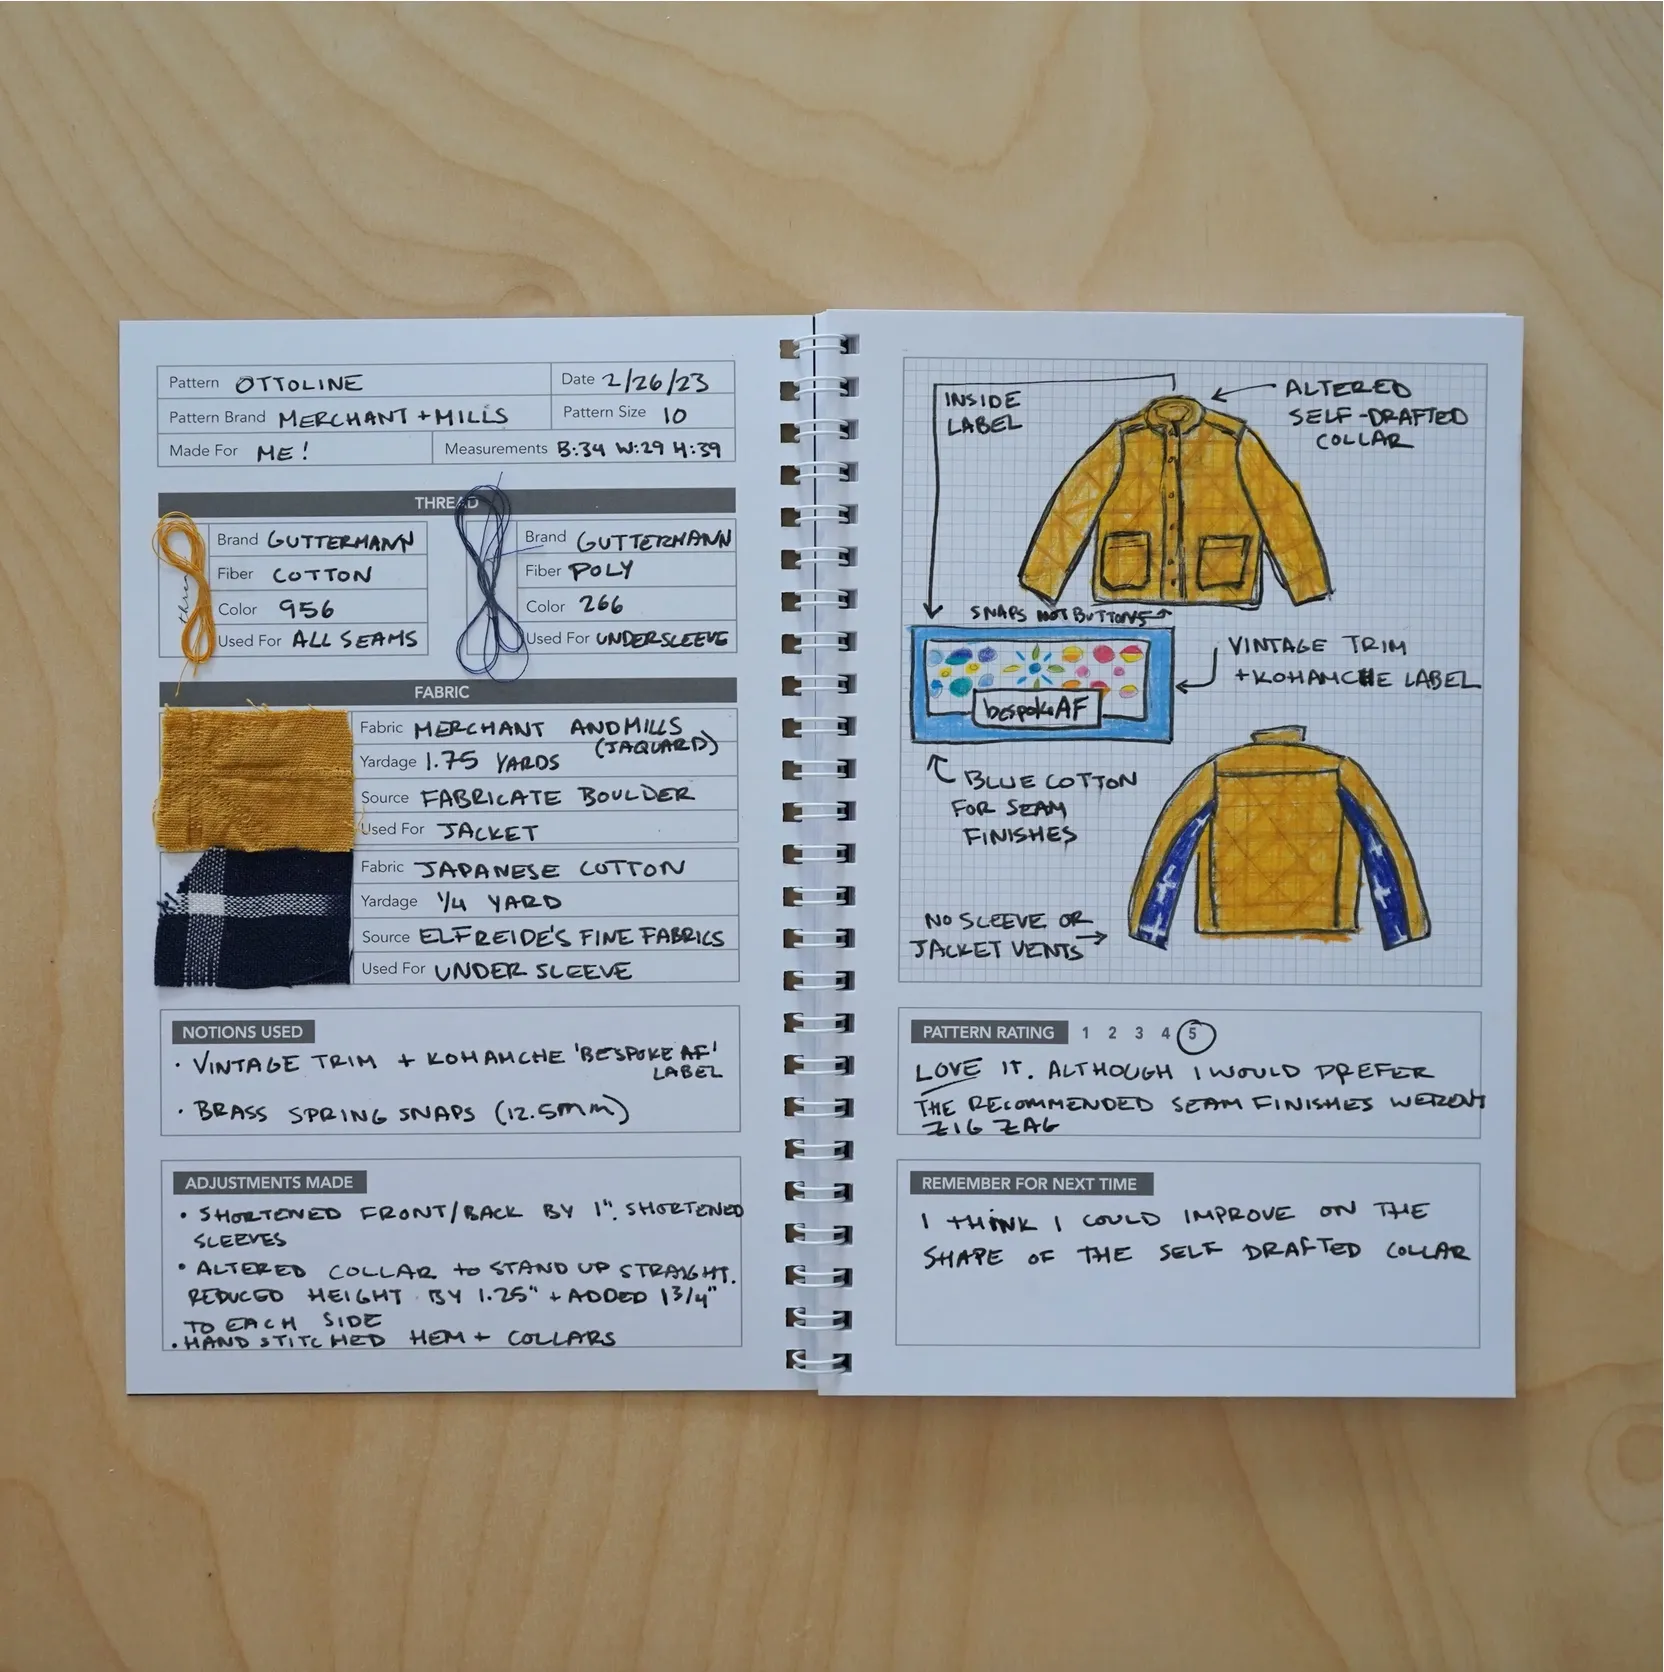 Pattern OTTOLINE
Date 2/26/23
Pattern Brand MERCHANT + MILLS
Pattern Size 10
Made For ME!
Measurements B:34 W:29 H:39
THREAD
Brand GUTTERMANN
Fiber COTTON
Color 956
Used For ALL SEAMS
Brand GUTTERMANN
Fiber POLY
Color 266
Used For UNDERSLEEVE
FABRIC
Fabric MERCHANT AND MILLS
(JAQUARD)
Yardage 1.75 YARDS
Source FABRICATE BOULDER
Used For JACKET
Fabric JAPANESE COTTON
Yardage 1/4 YARD
Source ELFREIDE'S FINE FABRICS
Used For UNDER SLEEVE
NOTIONS USED
• VINTAGE TRIM + KOHAMCHE 'BESPOKE AF'
LABEL
• BRASS SPRING SNAPS (12.5mm)
ADJUSTMENTS MADE
• SHORTENED FRONT/BACK BY 1". SHORTENED
SLEEVES
• ALTERED COLLAR TO STAND UP STRAIGHT.
REDUCED HEIGHT BY 1.25" + ADDED 1 3/4"
TO EACH SIDE
• HAND STITCHED HEM + COLLARS
INSIDE
LABEL
ALTERED
SELF-DRAFTED
COLLAR
SNAPS NOT BUTTONS
VINTAGE TRIM
+ KOHAMCHE LABEL
bespokeAF
BLUE COTTON
FOR SEAM
FINISHES
NO SLEEVE OR
JACKET VENTS
PATTERN RATING 1 2 3 4 5
LOVE IT. ALTHOUGH I WOULD PREFER
THE RECOMMENDED SEAM FINISHES WEREN'T
ZIG ZAG
REMEMBER FOR NEXT TIME
I THINK I COULD IMPROVE ON THE
SHAPE OF THE SELF DRAFTED COLLAR